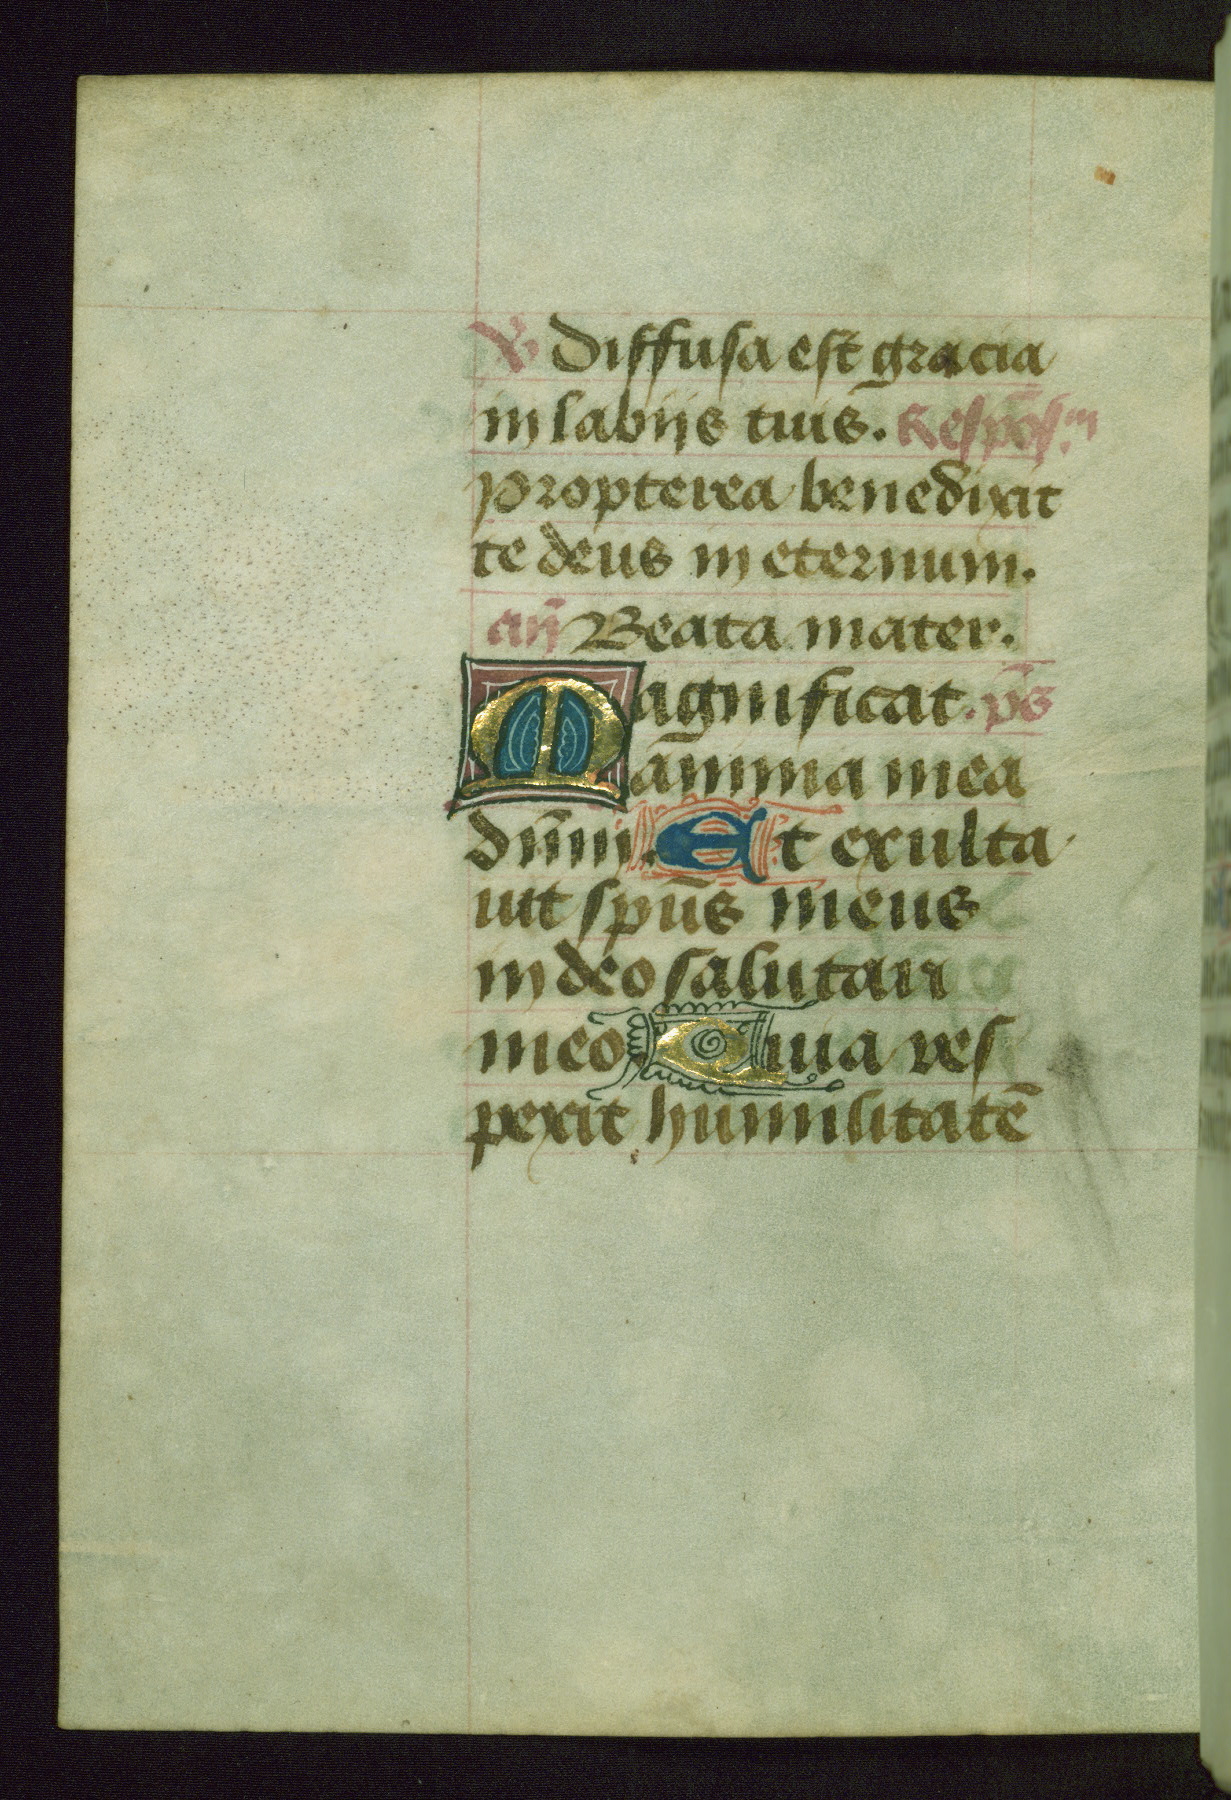 ℣ Diffusa est gracia
in labijs tuis. Respōs.m
Propterea benedixit
te deus in eternum.
an̄ Beata mater.
Magnificat. ps̄
anima mea
dn̄m. Et exulta
uit spūs meus
in deo salutari
meo Quia res
pexit humilitatē